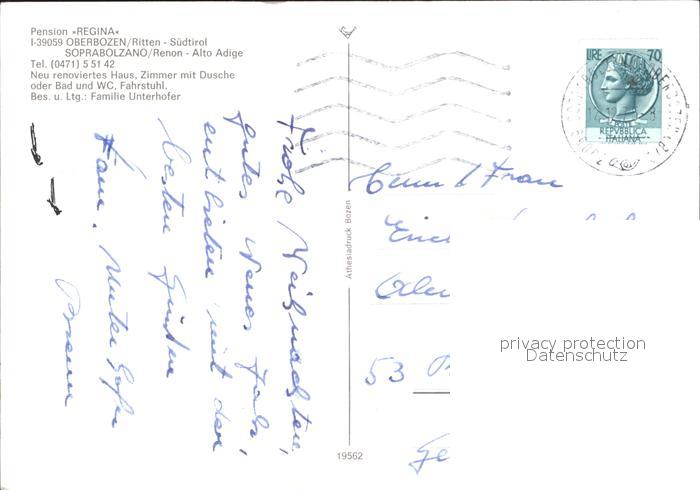 Pension »REGINA«
I-39059 OBERBOZEN/Ritten - Südtirol
SOPRABOLZANO/Renon - Alto Adige
Tel. (0471) 5 51 42
Neu renoviertes Haus, Zimmer mit Dusche
oder Bad und WC, Fahrstuhl.
Bes. u. Ltg.: Familie Unterhofer
Frohe Weihnachten,
gutes neues Jahr,
entbieten mit den
besten Grüßen
Fam. Unterhofer
Athesiadruck Bozen
19562
LIRE 70
REPVBBLICA
ITALIANA
Herrn & Frau
53
privacy protection
Datenschutz